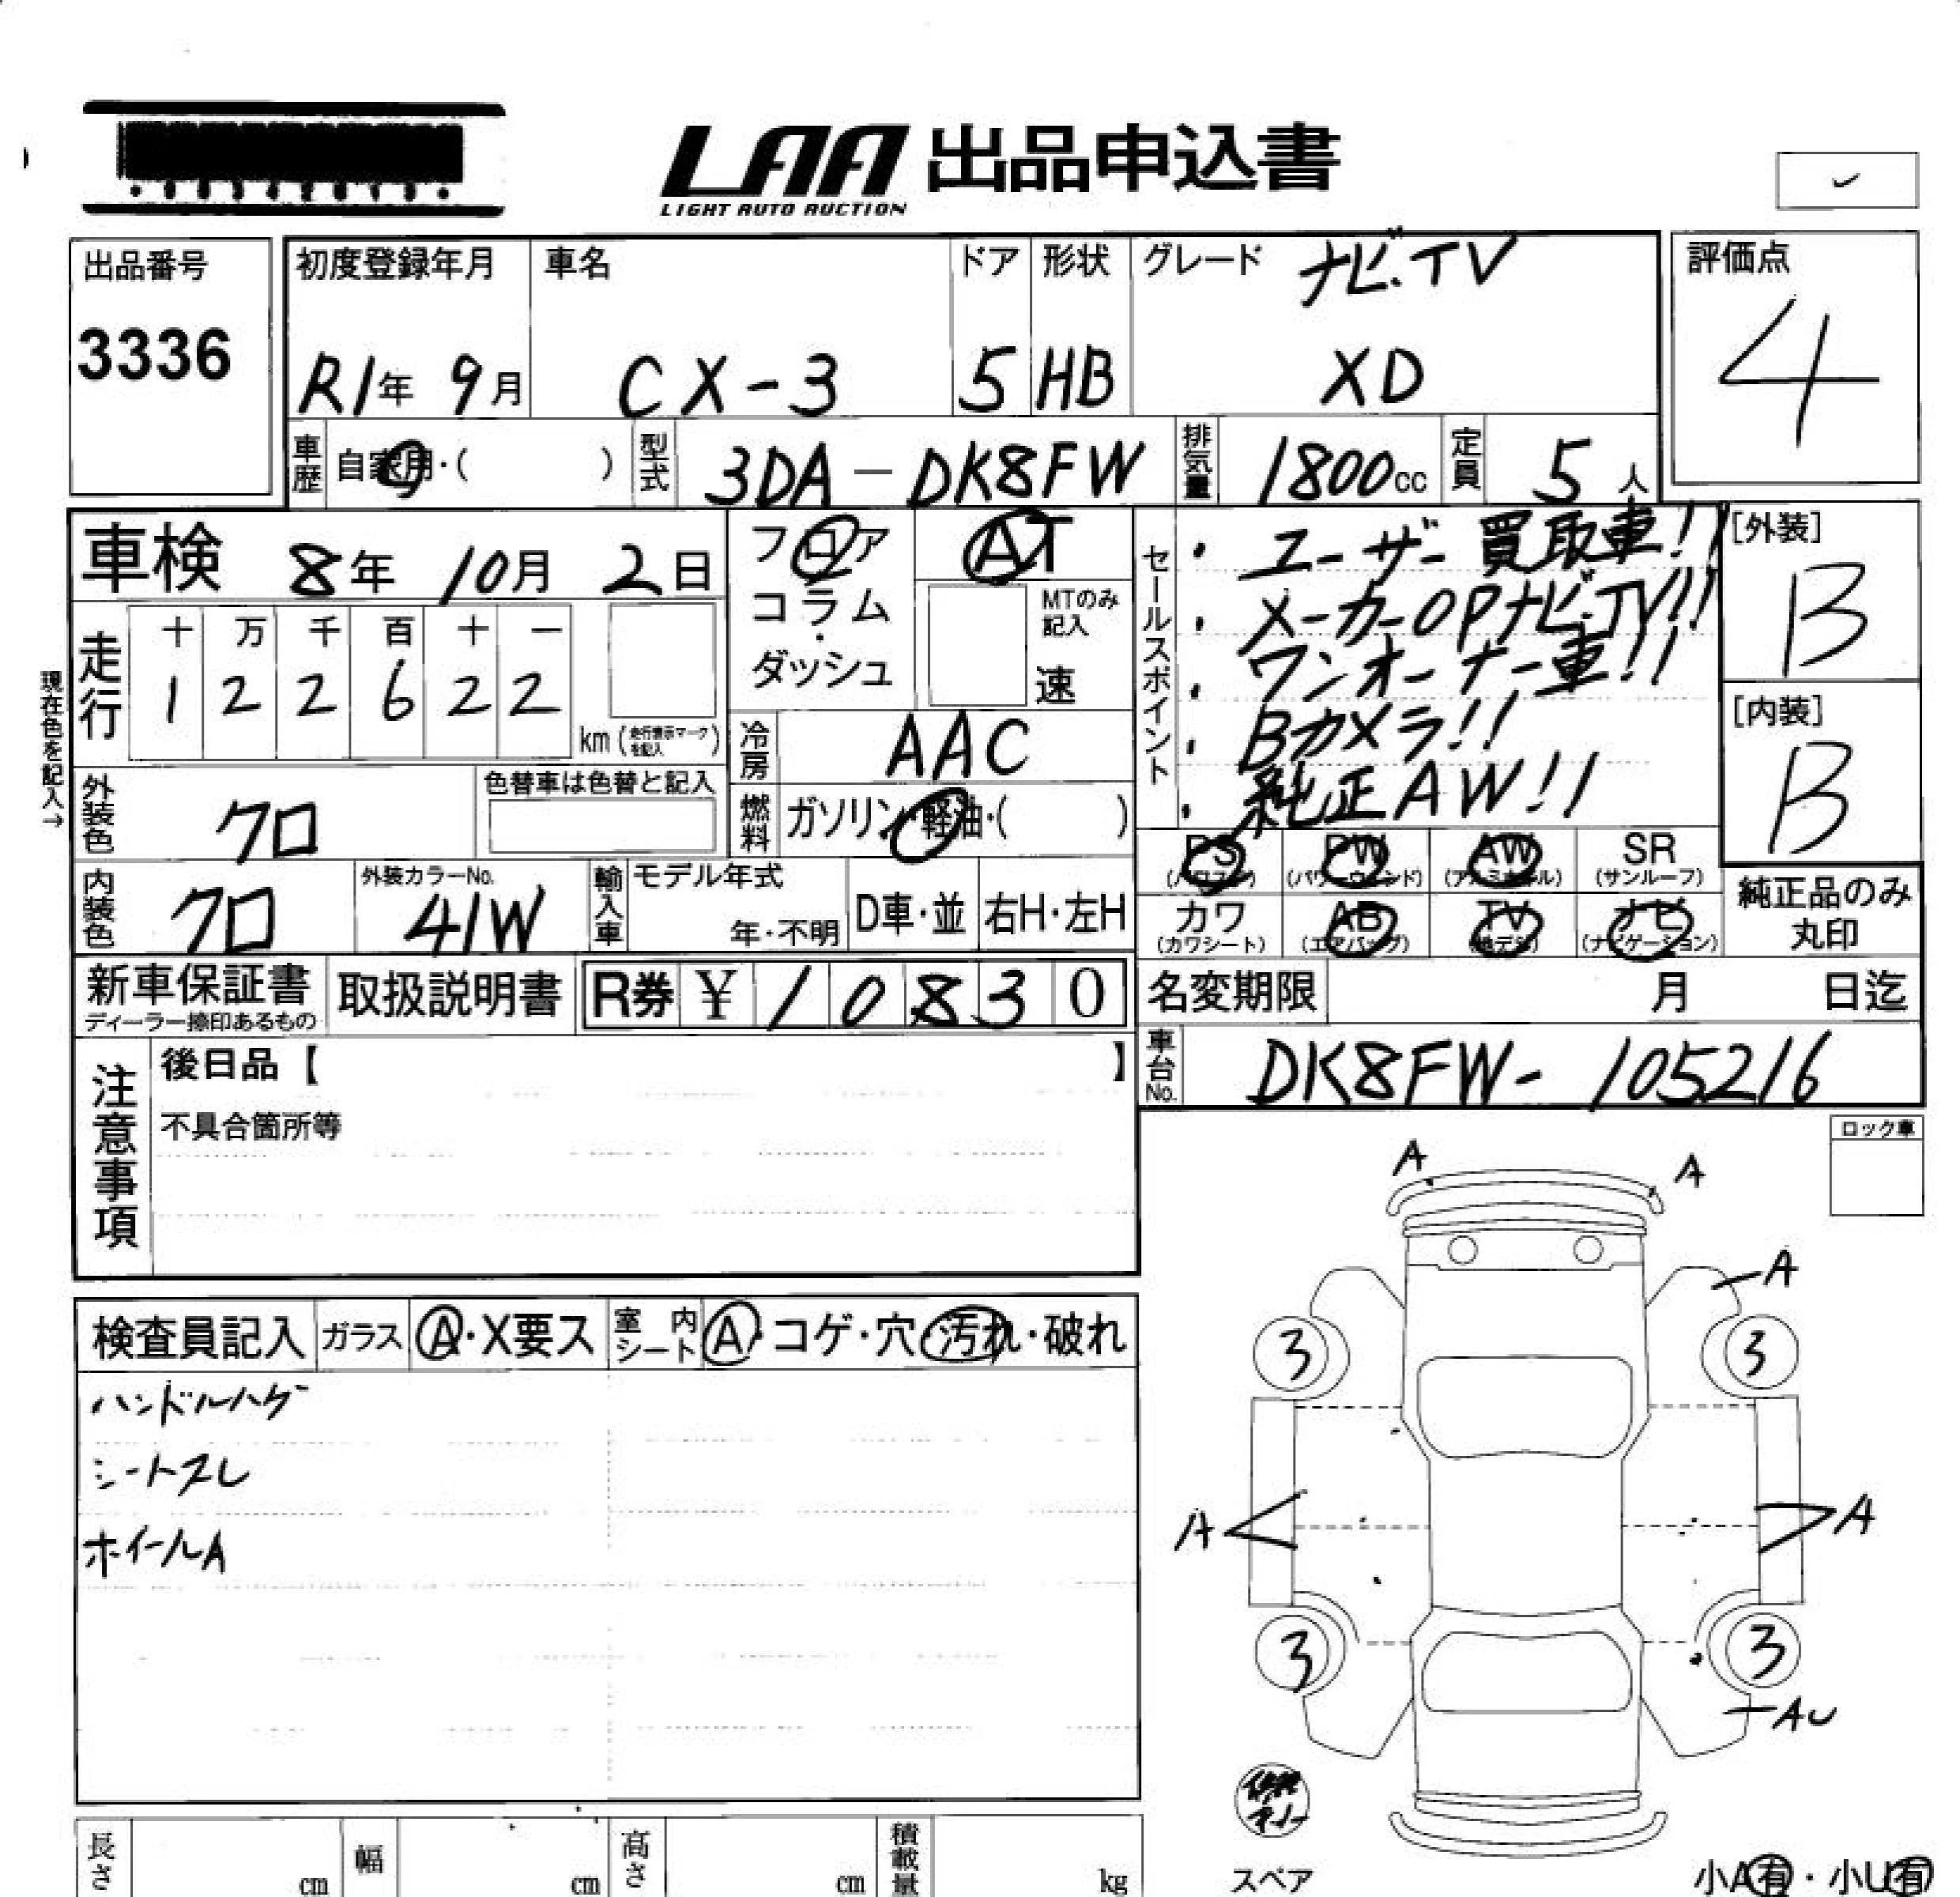 LAA 出品申込書
LIGHT AUTO AUCTION
出品番号
3336
初度登録年月
R1年 9月
車名
CX-3
ドア
5
形状
HB
グレード
ナビ.TV
XD
評価点
4
車歴 自家用・( )
型式 3DA-DK8FW
排気量 1800cc
定員 5人
車検 8年 10月 2日
フロア
コラム
・
ダッシュ
AT
MTのみ記入
速
セールスポイント
・ユーザー買取車!!
・メーカーOPナビ.TV!!
・ワンオーナー車!!
・Bカメラ!!
・純正AW!!
[外装]
B
[内装]
B
現在色を記入→
走行
十 万 千 百 十 一
1 2 2 6 2 2
km (走行表示マークを記入)
冷房 AAC
燃料 ガソリン・軽油・( )
外装色 クロ
色替車は色替と記入
内装色 クロ
外装カラーNo.
41W
輸入車
モデル年式
年・不明
D車・並
右H・左H
PS (パワステ)
PW (パワーウィンド)
AW (アルミホイル)
SR (サンルーフ)
カワ (カワシート)
AB (エアバッグ)
TV (地デジ)
ナビ (ナビゲーション)
純正品のみ
丸印
新車保証書
ディーラー捺印あるもの
取扱説明書
R券 ¥ 1 0 8 3 0
名変期限 月 日迄
車台No. DK8FW-105216
注意事項
後日品【 】
不具合箇所等
ロック車
検査員記入
ガラス A・X要ス
室内シート A・コゲ・穴・汚れ・破れ
ハンドルハゲ
シートスレ
ホイールA
A A
A
3 3
A A
3 3
AU
スペア
小A有・小U有
長さ cm
幅 cm
高さ cm
積載量 kg